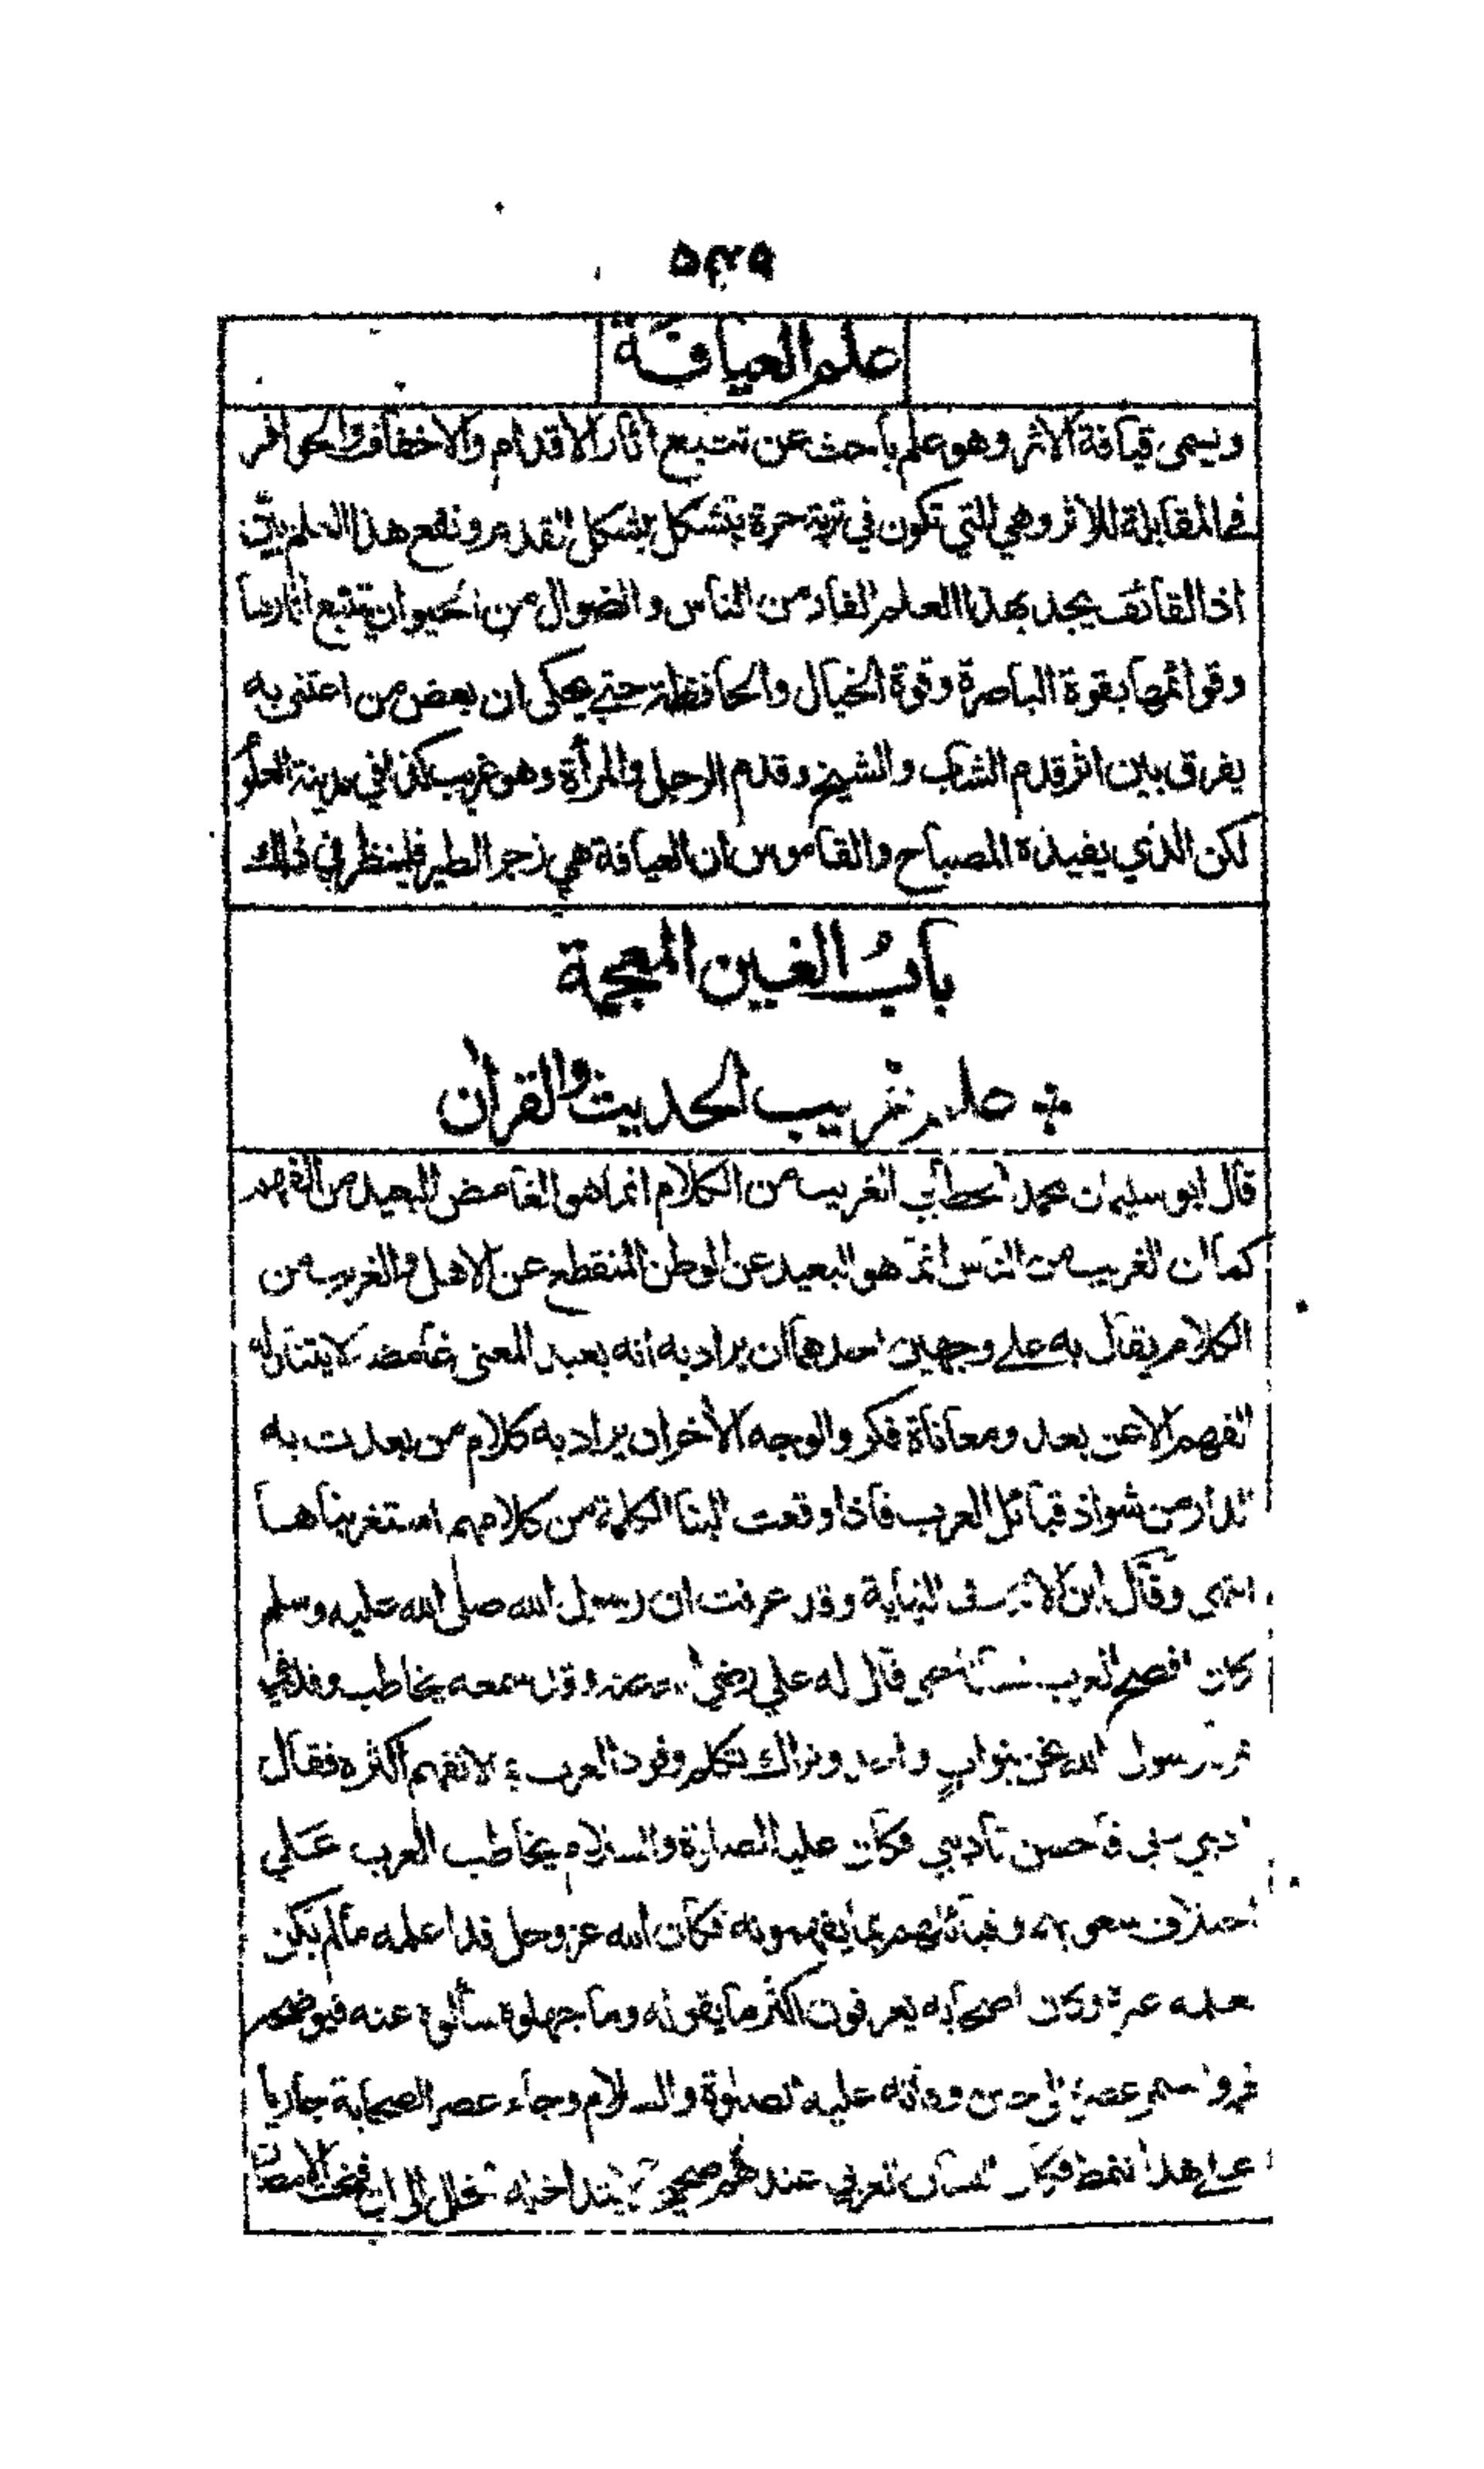 علم العيافة
ويسمى قيافة الاثر وهو علم باحث عن تتبع اثار الاقدام والاخفاف والحوافر
في المقابلة للاثر وهي التي تكون في تربة حرة يتشكل بشكل القدم ونفع هذا العلم بين
اذ القائف يجد بهذا العلم الفار من الناس والضوال من الحيوان يتتبع اثارها
وقوائمها بقوة الباصرة وقوة الخيال والحافظة حتى يحكى ان بعض من اعتنى به
يفرق بين اثر قدم الشاب والشيخ وقدم الرجل والمرأة وهو غريب كذا في مدينة العلو
لكن الذي يفيده المصباح والقاموس ان العيافة هي زجر الطير فلينظر في ذلك
باب الغين المعجمة
علم غريب الحديث والقران
قال ابو سليمان محمد الخطابي الغريب من الكلام انما هو الغامض البعيد من الفهم
كما ان الغريب من الناس انما هو البعيد عن الوطن المنقطع عن الاهل والغريب من
الكلام يقال به على وجهين احدهما ان يراد به انه بعيد المعنى غامضه لا يتناوله
الفهم الا عن بعد ومعاناة فكر والوجه الأخر ان يراد به كلام من بعدت به
الدار من شواذ قبائل العرب فاذا وقعت الينا الكلمة من كلامهم استغربناها
انتهى وقال ابن الاثير في النهاية وقد عرفت ان رسول الله صلى الله عليه وسلم
كان افصح العرب لسانا حتى قال له علي رضي الله عنه وقد سمعه يخاطب وفد بني
نهد يا رسول الله نحن بنو اب واحد ونراك تكلم وفود العرب بما لا نفهم اكثره فقال
ادبني ربي فاحسن تأديبي فكان عليه الصلوة والسلام يخاطب العرب على
اختلاف شعوبهم وقبائلهم بما يفهمونه فكان الله عز وجل قد اعلمه ما لم يكن
يعلمه غيره وكان اصحابه يعرفون اكثر ما يقوله وما جهلوه سألوه عنه فيوضحه
لهم واستمر عصره الى حين وفاته عليه الصلوة والسلام وجاء عصر الصحابة جاريا
على هذا النمط فكان اللسان العربي عندهم صحيحا لا يتداخله الخلل الى ان فتحت الامصار